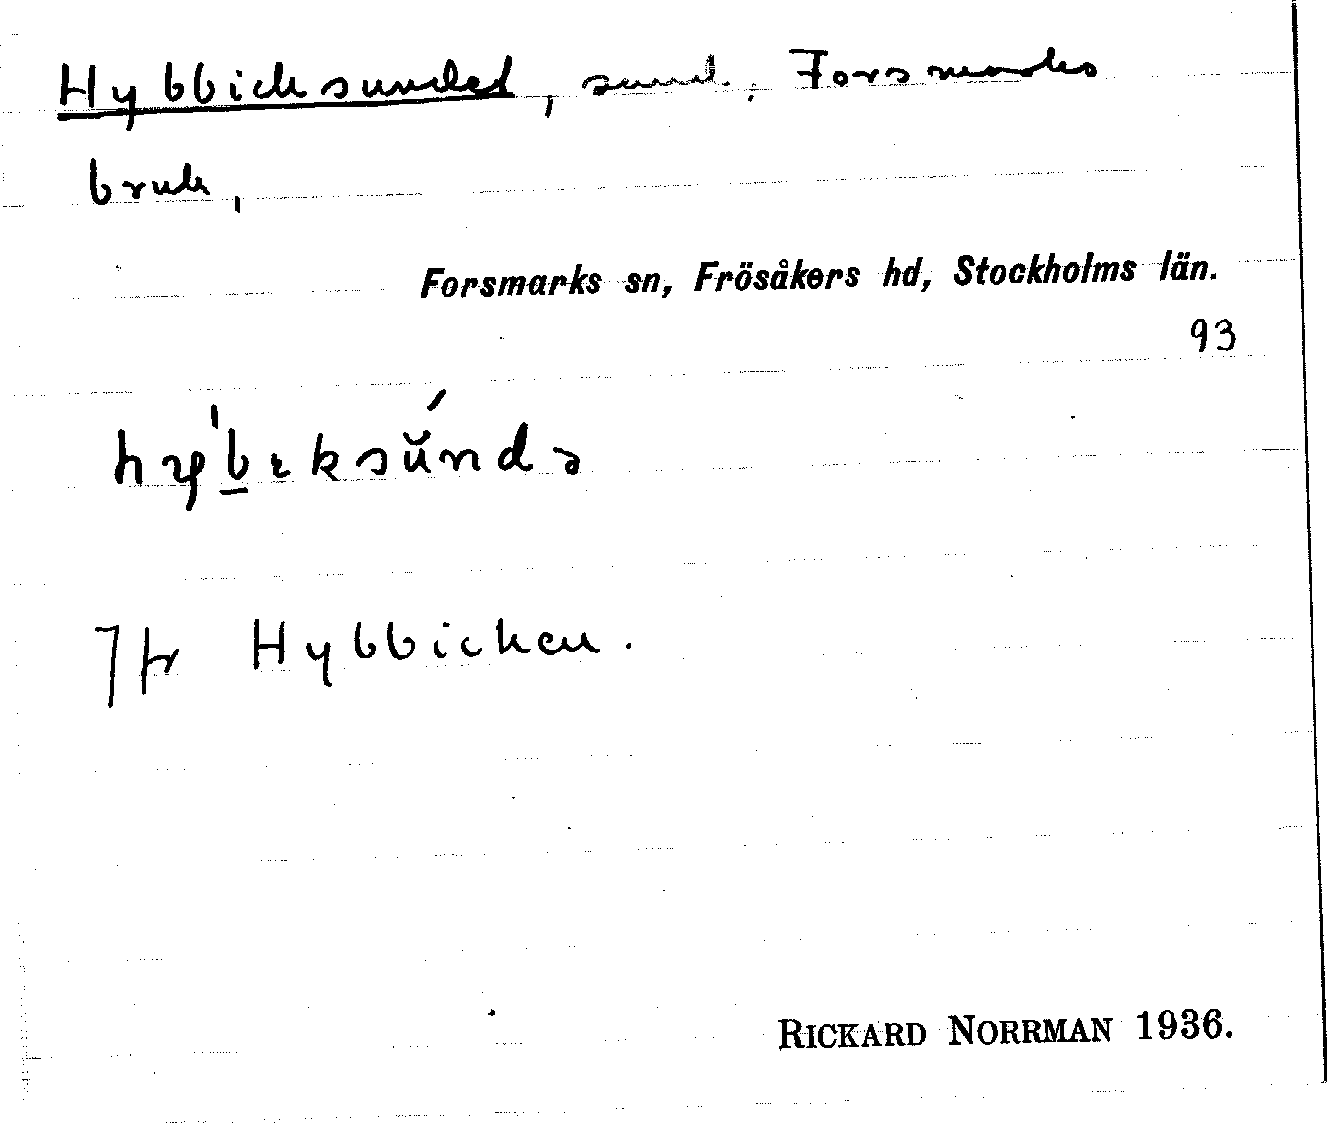 Hybbicksundet, sund, Forsmarks
bruk,
Forsmarks sn, Frösåkers hd, Stockholms län.
93
Jfr Hybbicken.
RICKARD NORRMAN 1936.